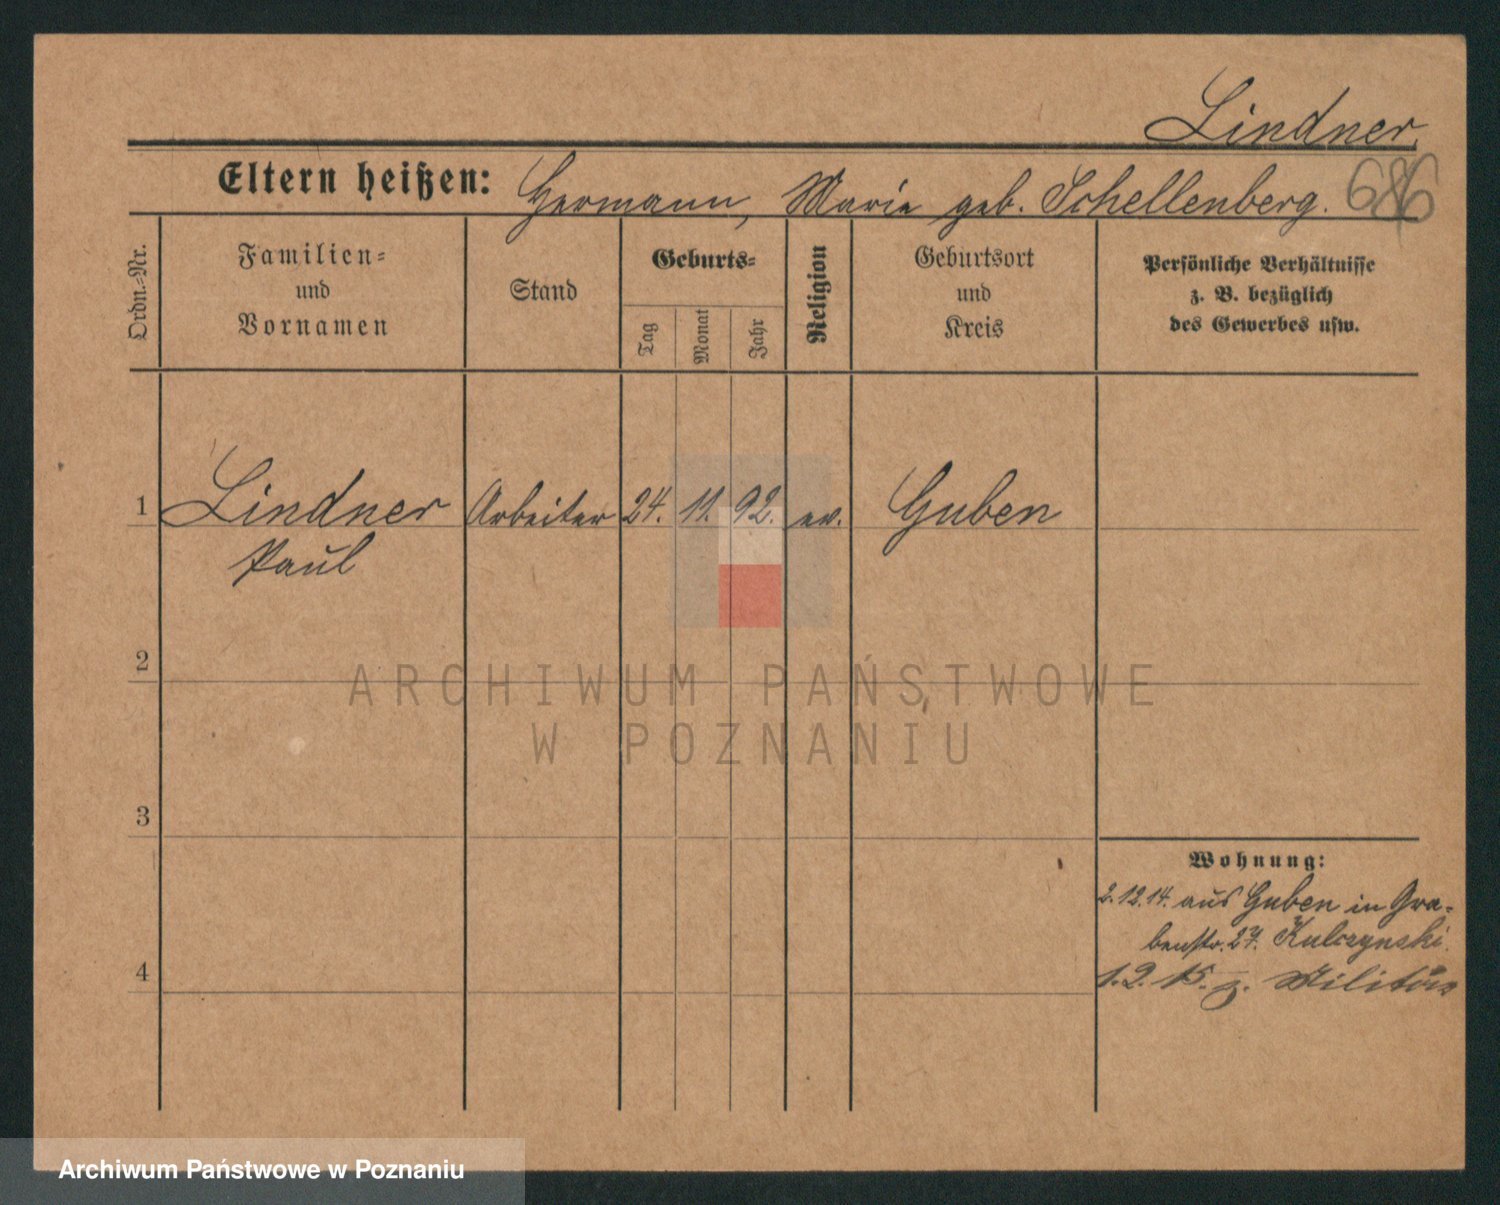 Lindner.
Eltern heißen: Hermann, Marie geb. Schellenberg.
Ordn.-Nr.
Familien- und Vornamen
Stand
Geburts-
Tag
Monat
Jahr
Religion
Geburtsort und Kreis
Persönliche Verhältnisse
z. B. bezüglich
des Gewerbes usw.
1 Lindner Arbeiter 24. 11. 92. ev. Guben
Paul
2
ARCHIWUM PAŃSTWOWE
W POZNANIU
3
Wohnung:
2.12.14. aus Guben in Gra-
benstr. 27. Kulczynski.
4
1.2.15. z. Militär
Archiwum Państwowe w Poznaniu